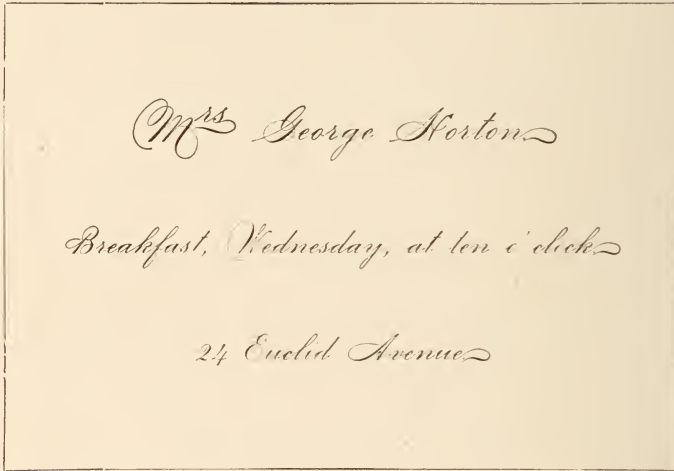 Mrs George Norton
Breakfast, Wednesday, at ten o'clock
24 Euclid Avenue